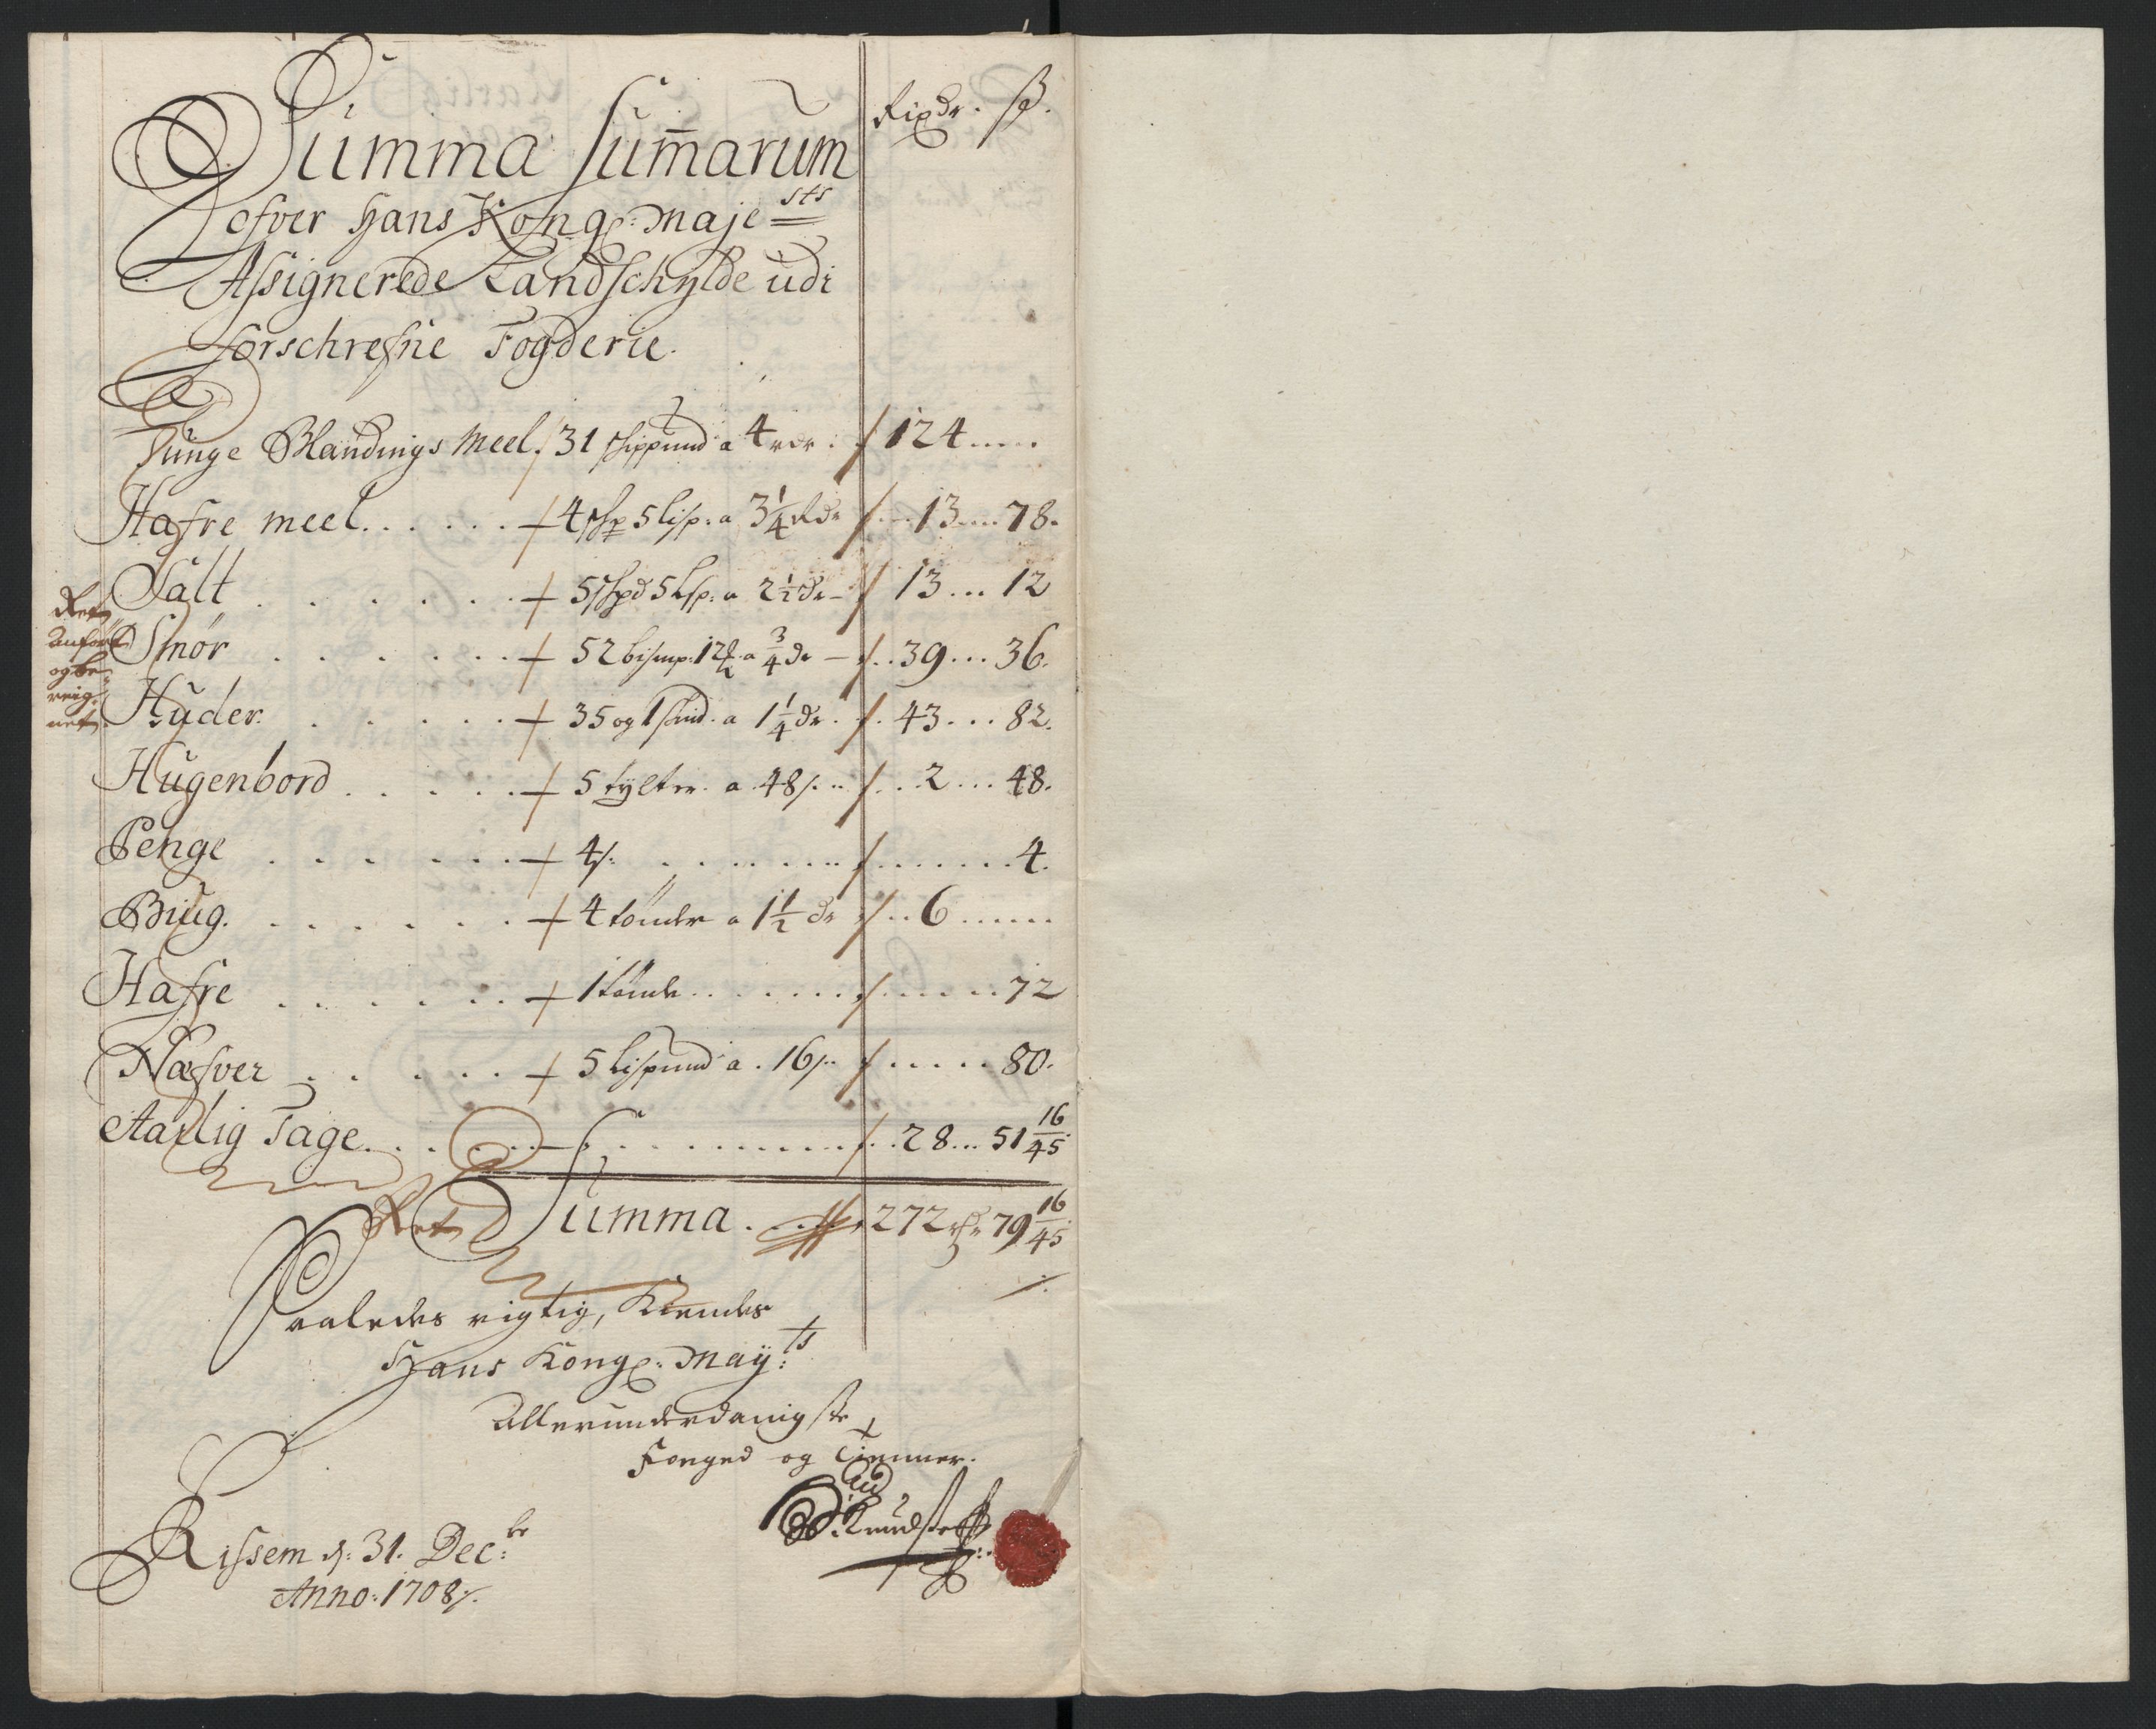 Rixdr. ß.
Summa Sum̄arum
ofver Hans Kong: Maje sts
Assignerede Landschylde udi
forschrefne Fogderie.
Tunge Blandings Meel. 31 skippund a 4 rdr. 124
Hafre meel. 4 skp 5 lisp: a 3 1/4 rdr 13 78.
Salt 5 skpd 5 Lisp: a 2 1/2 dr 13 12
Smør 52 bismp. 12 a 3/4 dr 39 36.
Huder. 35 og 1 skind. a 1 1/4 dr. 43 82.
Hugenbord 5 tylter. a 48 s. 2 48.
Penge 4 s: 4.
Biug. 4 tønder a 1 1/2 dr 6
Hafre 1 tønde 72
Næfver 5 Lispund a. 16 s. 80.
Aarlig Tage. 28 51 16/45
Ret
Anført
og be-
reig-
net.
Ret Summa. 272 rdr 79 16/45
Saaledes rigtig, Kiendes
Hans Kong: May: ts
Allerunderdanigste
Fouged og Tienner.
Rissem d: 31. Dec: br
Anno: 1708